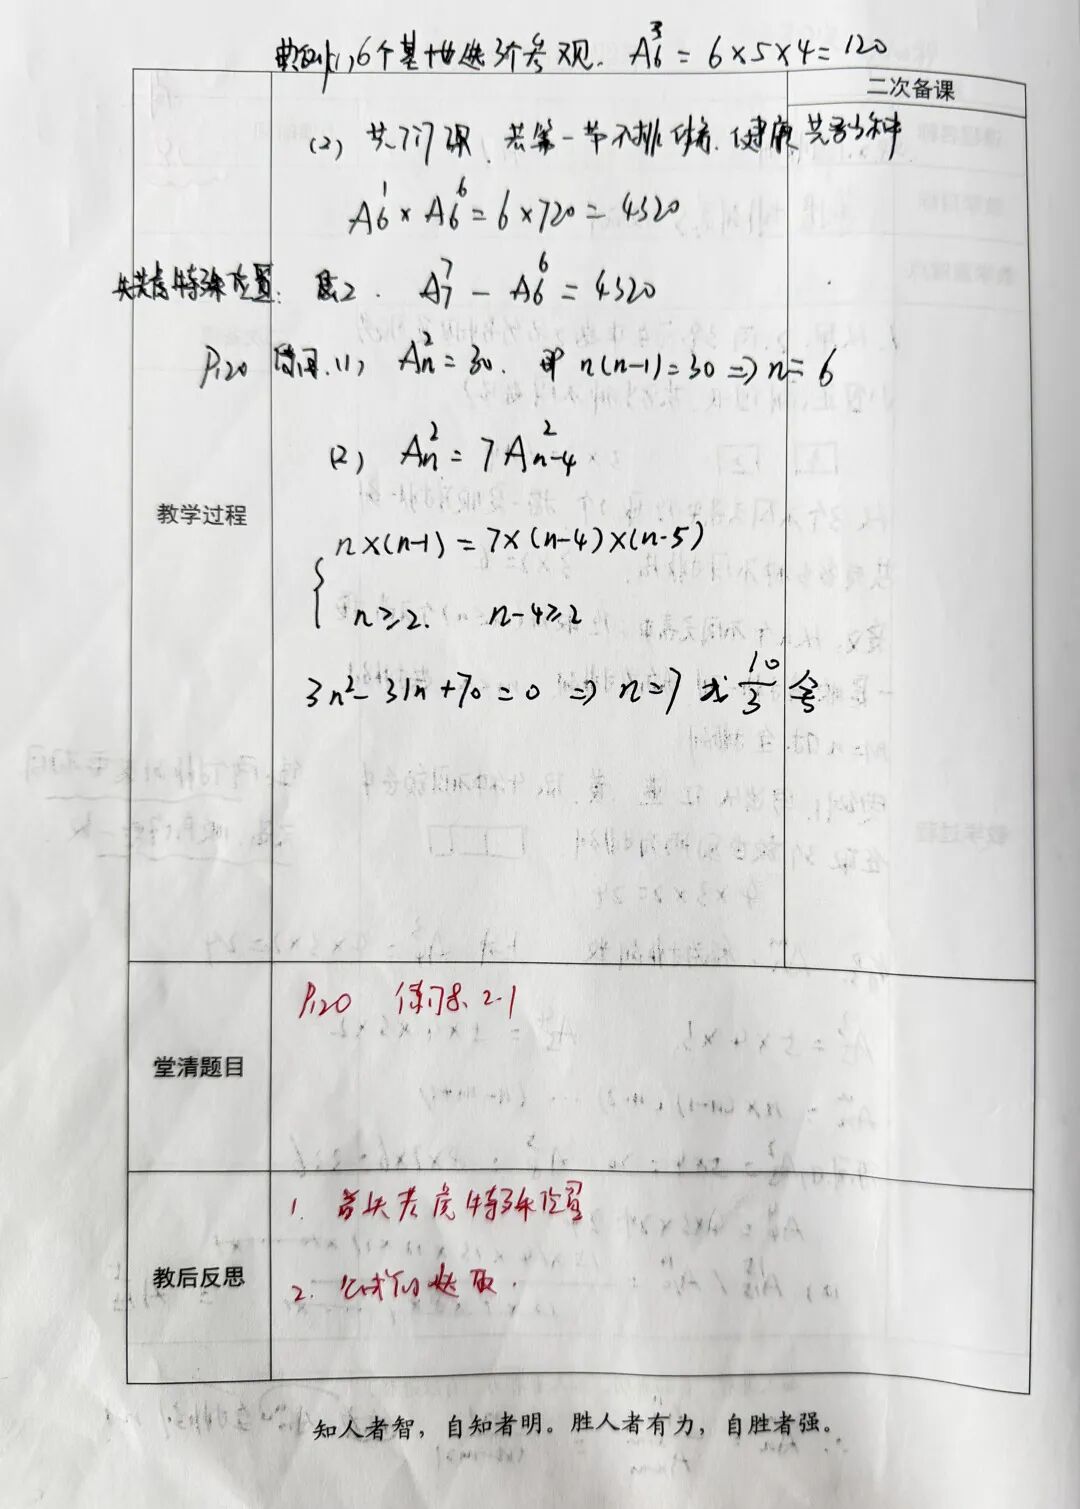 典例1,(1),6个基地选3个参观. A₆³ = 6×5×4=120
二次备课
(2) 共7门课, 若第一节不排体育、健康 共多少种
A₆¹ × A₆⁶ = 6×720 = 4320
先考虑特殊位置: 法2. A₇⁷ - A₆⁶ = 4320
P₁₂₀ 练习.(1), Aₙ² = 30. 即 n(n-1)=30 ⇒ n= 6
(2), Aₙ² = 7Aₙ₋₄²
教学过程
n×(n-1) = 7×(n-4)×(n-5)
n≥2. n-4≥2
3n²-31n+70=0 ⇒ n=7 或 10/3 舍
P₁₂₀ 练习8.2.1
堂清题目
1. 首先考虑特殊位置
教后反思
2. 公式的选取.
知人者智，自知者明。胜人者有力，自胜者强。